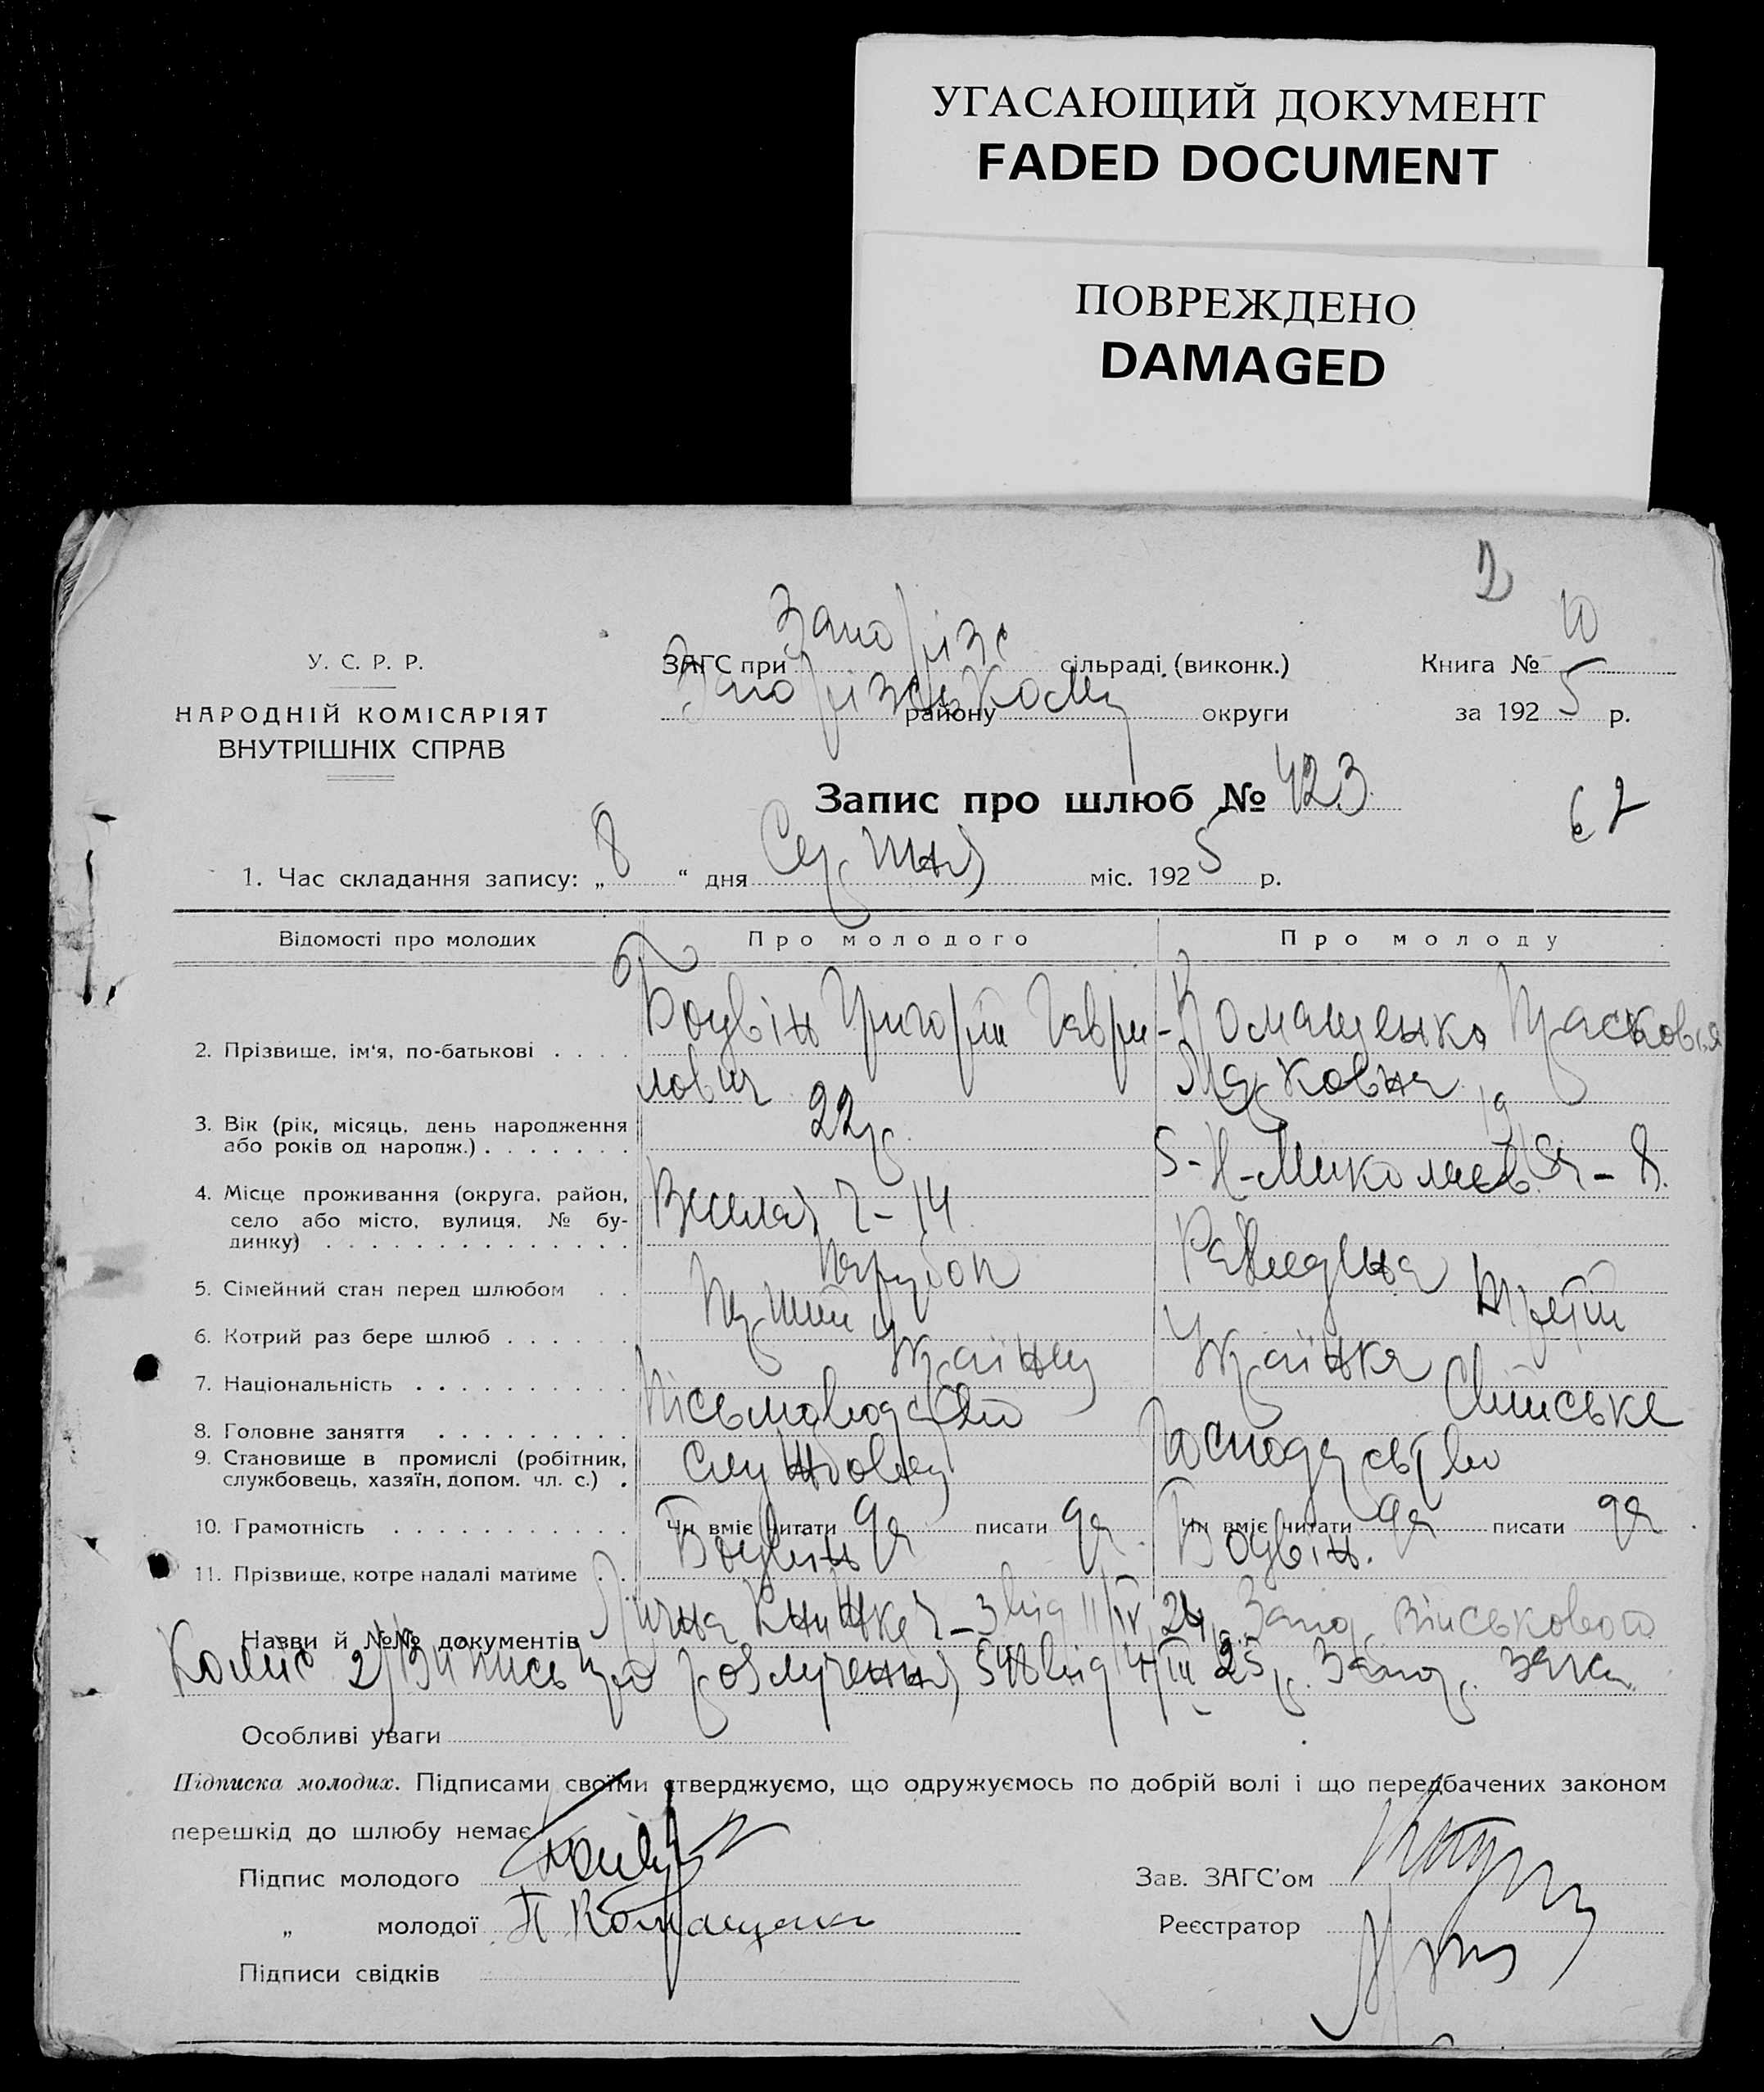 УГАСАЮЩИЙ ДОКУМЕНТ
FADED DOCUMENT
ПОВРЕЖДЕНО
DAMAGED
У. С. Р. Р.
НАРОДНІЙ КОМІСАРІЯТ
ВНУТРІШНІХ СПРАВ
ЗАГС при сільраді (виконк.)
району округи
Книга № 10
за 1925 р.
Запис про шлюб № 423
62
1. Час складання запису: „8“ дня Серпня міс. 1925 р.
Відомості про молодих Про молодого Про молоду
2. Прізвище, ім‘я, по-батькові . . . . Боцвін Григорій Гаври- Комащенко Прасковія
лович Марковна
3. Вік (рік, місяць, день народження
або років од народж.) . . . . . . . 22 р. 19
4. Місце проживання (округа, район,
село або місто, вулиця, № бу-
динку) . . . . . . . . . . . . . . Весела 7-14 8.
5. Сімейний стан перед шлюбом . . Парубок Розведена
6. Котрий раз бере шлюб . . . . . . Перший Третій
7. Національність . . . . . . . . . . Українец Українка
8. Головне заняття . . . . . . . . . Письмоводство Сільське
9. Становище в промислі (робітник,
службовець, хазяїн, допом. чл. с.) . Службовец Господарство
10. Грамотність . . . . . . . . . . . Чи вміє читати да писати да Чи вміє читати да писати да
11. Прізвище, котре надалі матиме . . Боцвин Боцвін.
Назви й №№ документів Лична Книжка від 11/IV 24 р. Запор. Військового
Коміс 2) Випись про розлучення 548 від III 25 р. Запор. Загс
Особливі уваги
Підписка молодих. Підписами своїми стверджуємо, що одружуємось по добрій волі і що передбачених законом
перешкід до шлюбу немає.
Підпис молодого Зав. ЗАГС’ом
„ молодої П Комащенко Реєстратор
Підписи свідків